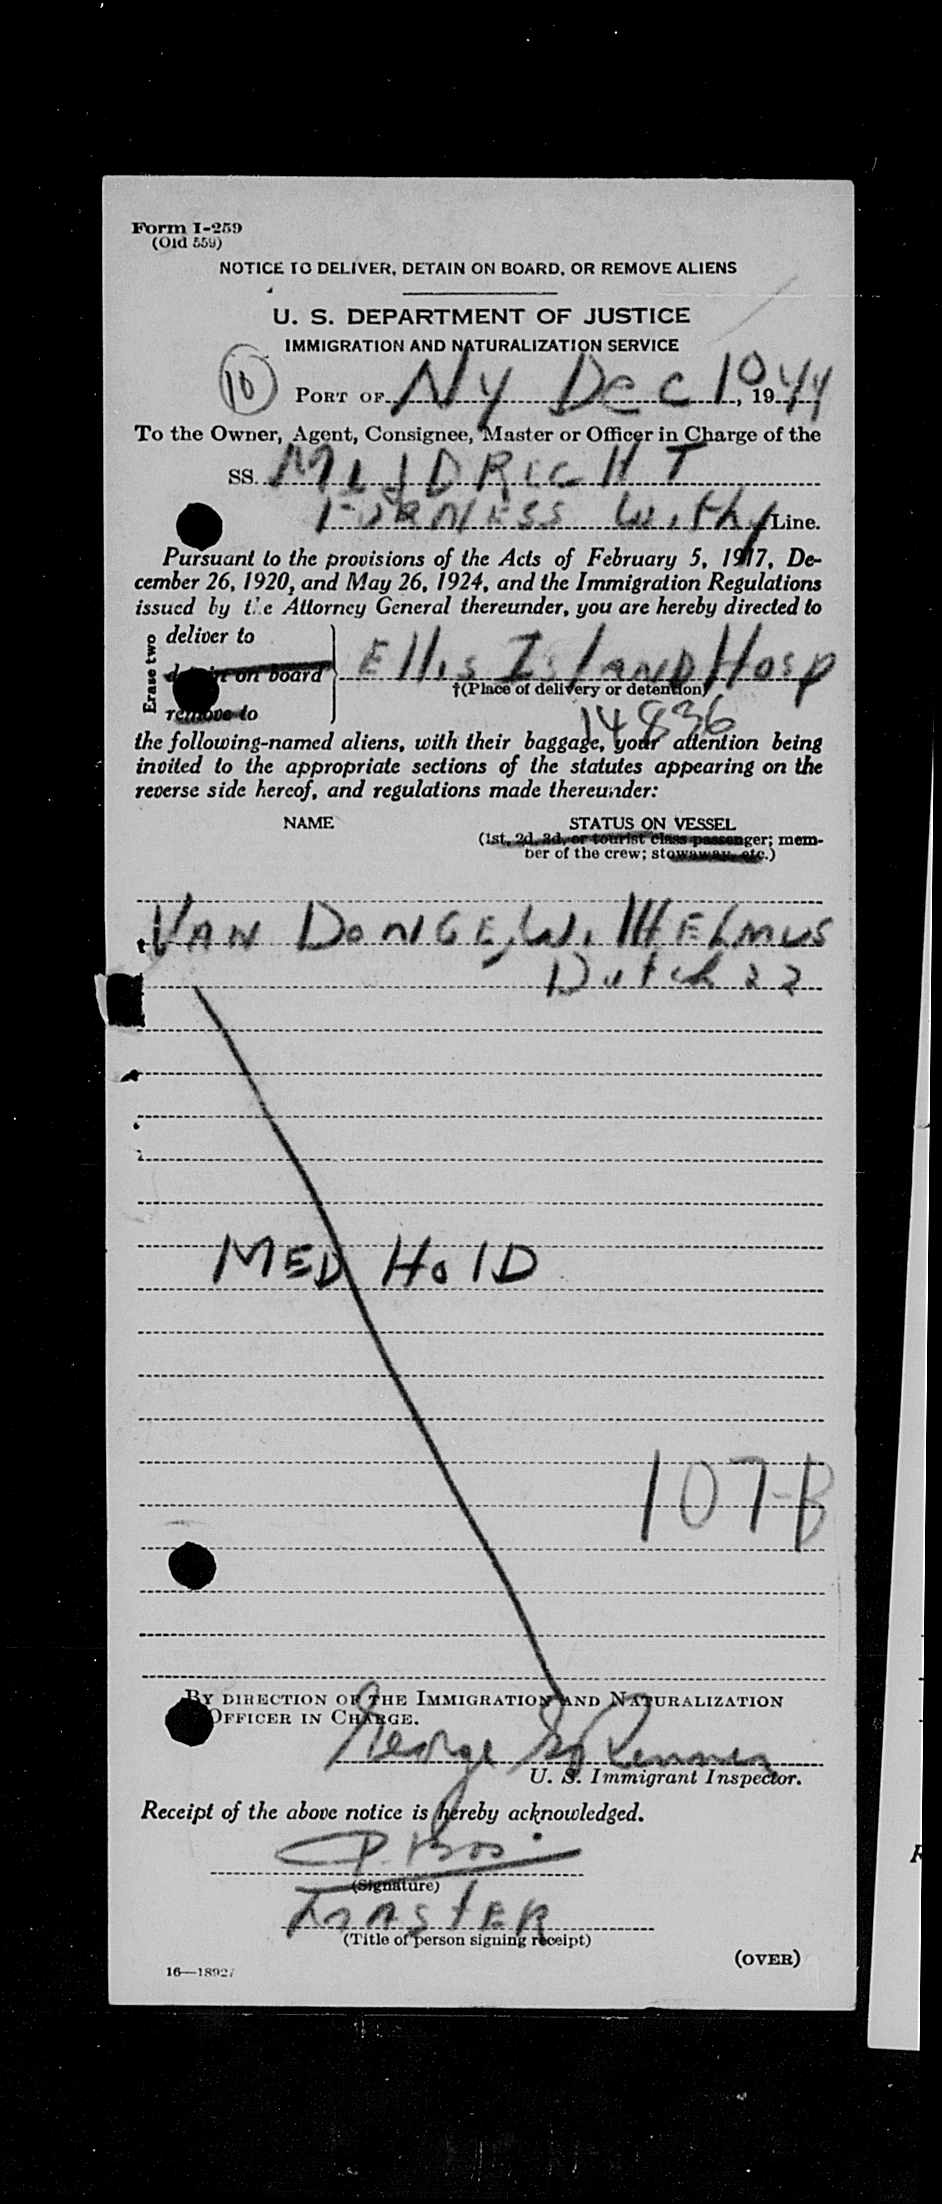 Form I-259
(Old 559)
NOTICE TO DELIVER, DETAIN ON BOARD, OR REMOVE ALIENS
U. S. DEPARTMENT OF JUSTICE
IMMIGRATION AND NATURALIZATION SERVICE
10
PORT OF NY Dec 10, 1944
To the Owner, Agent, Consignee, Master or Officer in Charge of the
SS. MIJDRECHT
FURNESS Withy Line.
Pursuant to the provisions of the Acts of February 5, 1917, De-
cember 26, 1920, and May 26, 1924, and the Immigration Regulations
issued by the Attorney General thereunder, you are hereby directed to
Erase two
deliver to
detain on board
remove to
Ellis Island Hosp
†(Place of delivery or detention)
14836
the following-named aliens, with their baggage, your attention being
invited to the appropriate sections of the statutes appearing on the
reverse side hereof, and regulations made thereunder:
NAME STATUS ON VESSEL
(1st, 2d, 3d, or tourist class passenger; mem-
ber of the crew; stowaway, etc.)
VAN DONGE, WILHELMUS
Dutch 22
MED HOLD
107-B
BY DIRECTION OF THE IMMIGRATION AND NATURALIZATION
OFFICER IN CHARGE.
George
U. S. Immigrant Inspector.
Receipt of the above notice is hereby acknowledged.
P. Bos
(Signature)
MASTER
(Title of person signing receipt)
(OVER)
16—18927